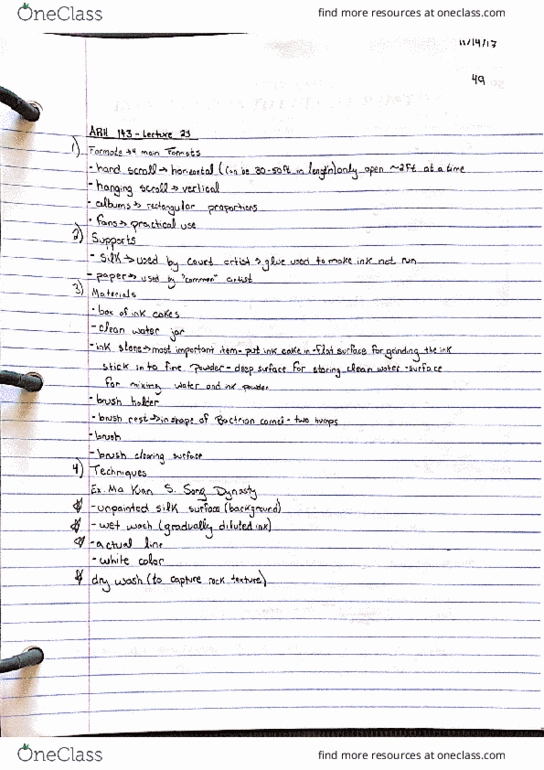 OneClass find more resources at oneclass.com
11/14/17
49
ARH 143 - Lecture 23
1) Formats → 4 main formats
- hand scroll → horizontal (can be 30-50ft in length) only open ~2ft at a time
- hanging scroll → vertical
- albums → rectangular proportions
- fans → practical use
2) Supports
- silk → used by court artist → glue used to make ink not run
- paper → used by "common" artist
3) Materials
- box of ink cakes
- clean water jar
- ink stone → most important item - put ink cake in - flat surface for grinding the ink
stick into fine powder - deep surface for storing clean water - surface
for mixing water and ink powder
- brush holder
- brush rest → in shape of Bactrian camel - two humps
- brush
- brush cleaning surface
4) Techniques
Ex. Ma Yuan S. Song Dynasty
- unpainted silk surface (background)
- wet wash (gradually diluted ink)
- actual line
- white color
dry wash (to capture rock texture)
OneClass find more resources at oneclass.com